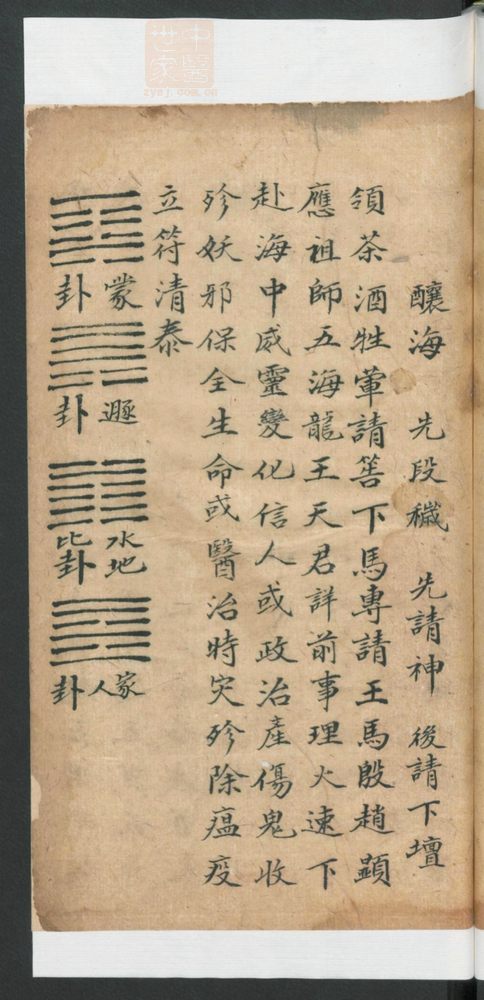 中醫世家
zysj.com.cn
釀海 先段穢 先請神 後請下壇
領茶酒牲葷請筶下馬專請王馬殷趙顯
應祖師五海龍王天君詳前事理火速下
赴海中威靈變化信人或政治產傷鬼收
殄妖邪保全生命或醫治時灾殄除瘟疫
立符清泰
蒙卦
遯卦
水地比卦
家人卦